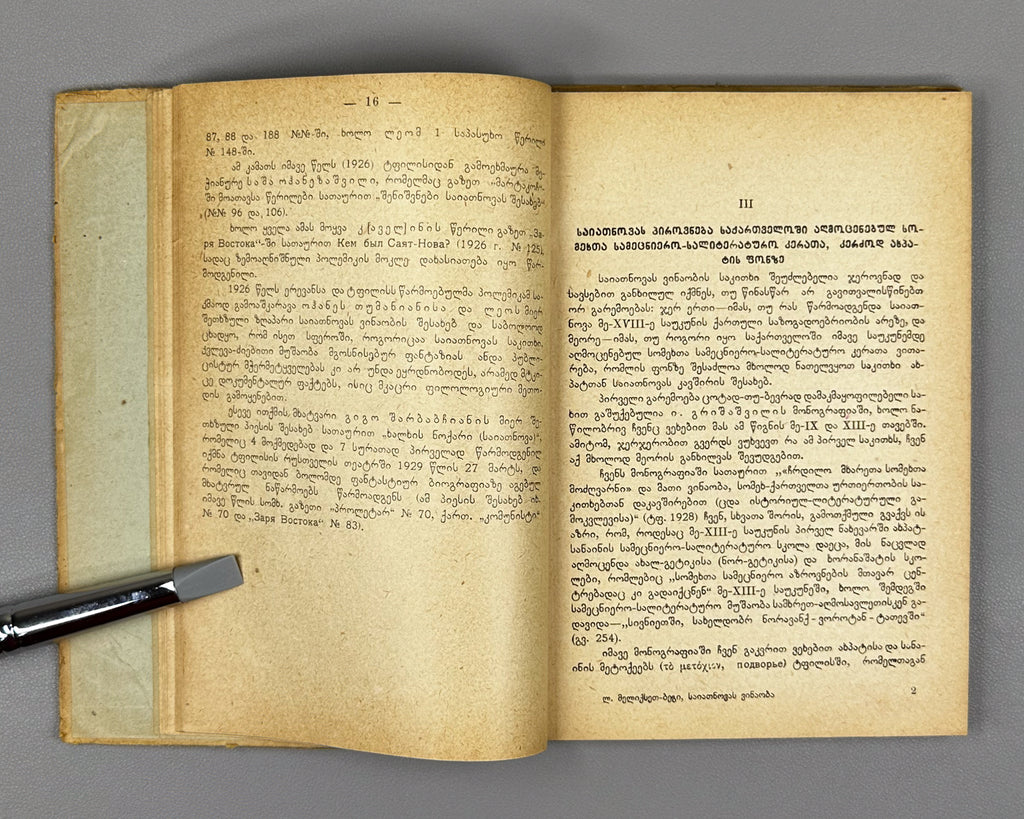 — 16 —
87, 88 და 188 №№-ში, ხოლო ლეომ 1 საპასუხო წერილი
№ 148-ში.
ამ კამათს იმავე წელს (1926) ტფილისიდან გამოეხმაურა მე-
ქიანურე საშა ოჰანეზაშვილი, რომელმაც გაზეთ „მარტაკოჩ-
ში მოათავსა წერილები სათაურით „შენიშვნები საიათნოვას შესახებ“
(№№ 96 და 106).
ხოლო ყველა ამას მოყვა წერილი გაზეთ „За-
ря Востока“-ში სათაურით Кем был Саят-Нова? (1926 г. № 125),
სადაც ზემოაღნიშნული პოლემიკის მოკლე დახასიათება იყო წარ-
მოდგენილი.
1926 წელს ერევანსა და ტფილისს წარმოებულმა პოლემიკამ სა-
კმაოდ გამოაშკარავა ოჰანეს თუმანიანისა და ლეოს მიერ
შეთხზული ზღაპარი საიათნოვას ვინაობის შესახებ და საბოლოოდ
ცხადყო, რომ ისეთ სფეროში, როგორიცაა საიათნოვას საკითხი,
კვლევა-ძიებითი მუშაობა მგოსნისებურ ფანტაზიას ანდა პუბლი-
ცისტურ მჭერმეტყველებას კი არ უნდა ეყრდნობოდეს, არამედ მტკი-
ცე დოკუმენტალურ ფაქტებს, ისიც მკაცრი ფილოლოგიური მეთო-
დის გამოყენებით.
ესევე ითქმის, მხატვარი გიგო შარბაბჩიანის მიერ შე-
თხზული პიესის შესახებ სათაურით „ხალხის ნოქარი (საიათნოვა)“,
რომელიც 4 მოქმედებად და 7 სურათად პირველად წარმოდგენილ
იქმნა ტფილისის რუსთველის თეატრში 1929 წლის 27 მარტს, და
რომელიც თავიდან ბოლომდე ფანტასტიურ ბიოგრაფიაზე აგებულ
მხატვრულ ნაწარმოებს წარმოადგენს (ამ პიესის შესახებ იხ.
იმავე წლის სომხ. გაზეთი „პროლეტარ“ № 70, ქართ. „კომუნისტი“
№ 70 და „Заря Востока“ № 83).
III
საიათნოვას პიროვნება საქართველოში აღმოცენებულ სო-
მეხთა სამეცნიერო-სალიტერატურო კერათა, კერძოდ ახპა-
ტის ფონზე
საიათნოვას ვინაობის საკითხი შეუძლებელია ჯეროვნად და
სავსებით განხილულ იქმნეს, თუ წინასწარ არ გავითვალისწინებთ
ორ გარემოებას: ჯერ ერთი—იმას, თუ რას წარმოადგენდა საიათ-
ნოვა მე-XVIII-ე საუკუნის ქართული საზოგადოებრიობის არეზე, და
მეორე—იმას, თუ როგორი იყო საქართველოში იმავე საუკუნემდე
აღმოცენებულ სომეხთა სამეცნიერო-სალიტერატურო კერათა ვითა-
რება, რომლის ფონზე შესაძლოა მხოლოდ ნათელვყოთ საკითხი ახ-
პატთან საიათნოვას კავშირის შესახებ.
პირველი გარემოება ცოტად-თუ-ბევრად დამაკმაყოფილებელი სა-
ხით გაშუქებულია ი. გრიშაშვილის მონოგრაფიაში, ხოლო ნა-
წილობრივ ჩვენც ვეხებით მას ამ წიგნის მე-IX და XIII-ე თავებში.
ამიტომ, ჯერჯერობით გვერდს ვუხვევთ რა ამ პირველ საკითხს, ჩვენ
აქ მხოლოდ მეორის განხილვას შევუდგებით.
ჩვენს მონოგრაფიაში სათაურით „«ჩრდილო მხარეთა სომეხთა
მოძღვარნი» და მათი ვინაობა, სომეხ-ქართველთა ურთიერთობის სა-
კითხებთან დაკავშირებით (ცდა ისტორიულ-ლიტერატურული გა-
მოკვლევისა)“ (ტფ. 1928) ჩვენ, სხვათა შორის, გამოთქმული გვაქვს ის
აზრი, რომ, როდესაც მე-XIII-ე საუკუნის პირველ ნახევარში ახპატ-
სანაინის სამეცნიერო-სალიტერატურო სკოლა დაეცა, მის ნაცვლად
აღმოცენდა ახალ-გეტიკისა (ნორ-გეტიკისა) და ხორანაშატის სკო-
ლები, რომლებიც „სომეხთა სამეცნიერო აზროვნების მთავარ ცენ-
ტრებადაც კი გადაიქცნენ“ მე-XIII-ე საუკუნეში, ხოლო შემდეგში
სამეცნიერო-სალიტერატურო მუშაობა სამხრეთ-აღმოსავლეთისკენ გა-
დავიდა—„სივნიეთში, სახელდობრ ნორავანქ-ვოროტან-ტათევში“
(გვ. 254).
იმავე მონოგრაფიაში ჩვენ გაკვრით ვეხებით ახპატისა და სანა-
ინის მეტოქეებს (τὸ μετόχιον, подворье) ტფილისში, რომელთაგან
ლ. მელიქსეთ-ბეგი, საიათნოვას ვინაობა
2